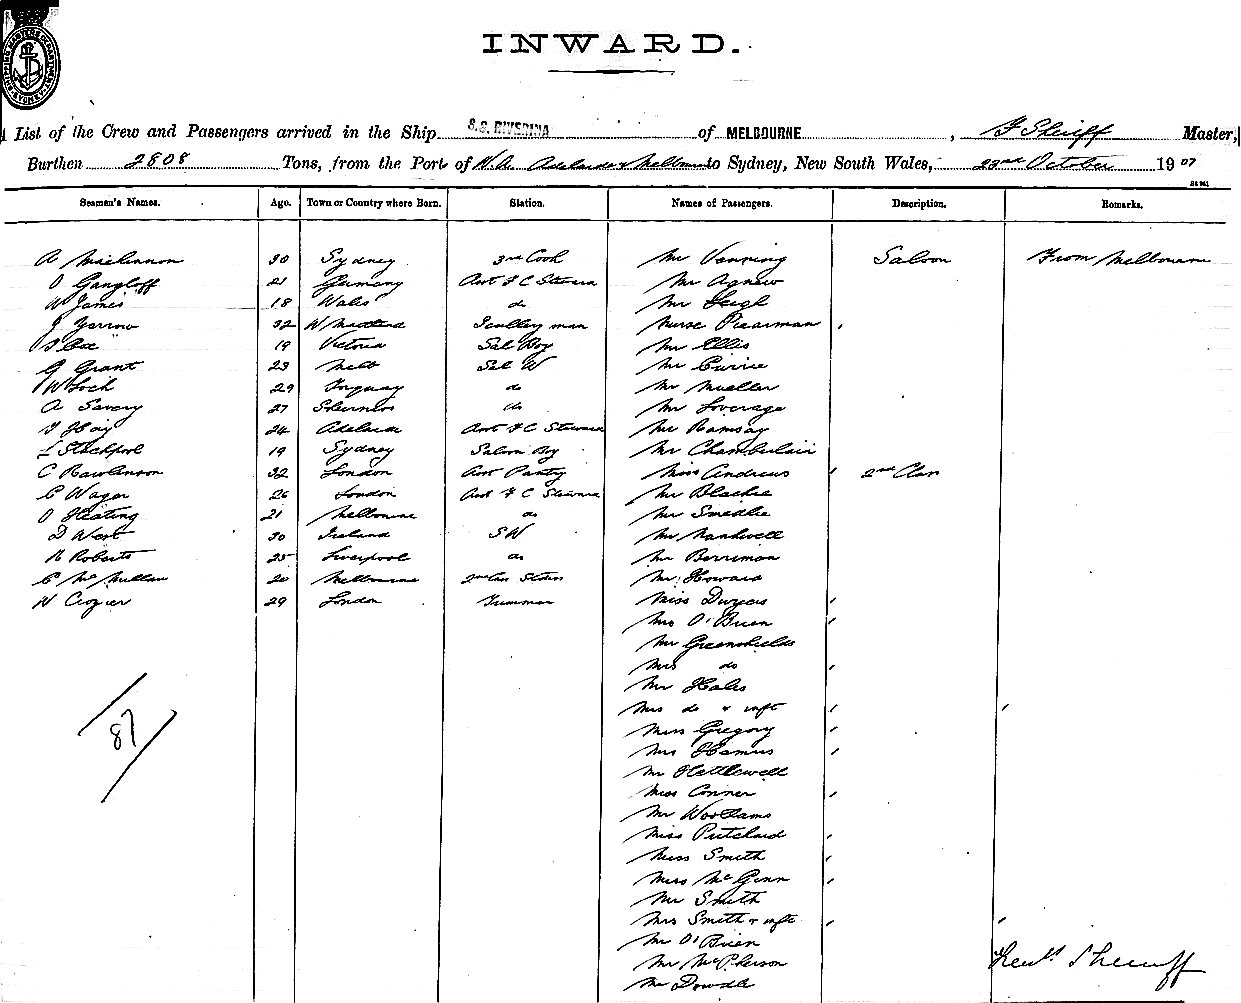 INWARD.
List of the Crew and Passengers arrived in the Ship S.S. RIVERINA of MELBOURNE, F Sheriff Master,
Burthen 2808 Tons, from the Port of W.A. Adelaide & Melbourne to Sydney, New South Wales, 23rd October 1907
Seamen's Names. Age. Town or Country where Born. Station. Names of Passengers. Description. Remarks.
A MacLennon 30 Sydney 3rd Cook Mr Vanning Saloon From Melbourne
O Gangloff 21 Germany Asst F C Steward Mr Agnew
W James 18 Wales do Mr Leigh
J Yarrow 32 W Maitland Scullery man Nurse Pearman
19 Victoria Sal Boy Mr Ellis
G Grant 23 Melb Sal W Mr Currie
W Loch 29 Torquay do Mr Mueller
A Savery 27 Sheerness do Mr Loverage
F Hay 24 Adelaide Asst F C Steward Mr Ramsay
L Stackpool 19 Sydney Saloon Boy Mr Chamberlain
C Rawlinson 32 London Asst Pantry Miss Andrews 2nd Class
C Wager 26 London Asst F C Steward Mr Blackie
O Keating 21 Melbourne do Mr Smedlie
D West 30 Ireland S W Mr Nankivell
R Roberts 25 Liverpool do Mr Berriman
C McMullen 20 Melbourne Mr Howard
W Crozier 29 London Trimmer Miss
Mrs O'Brien
Mr Greenshields
Mrs do
Mr Hales
Mrs do & inft
Miss Gregory
Mrs
Mr Kettlewell
Miss Conner
Mr Woollams
Miss Pritchard
Miss Smith
Miss McGinn
Mr Smith
Mrs Smith & inft
Mr O'Brien
Mr McPherson
Mr Dowdle
87
Sheriff